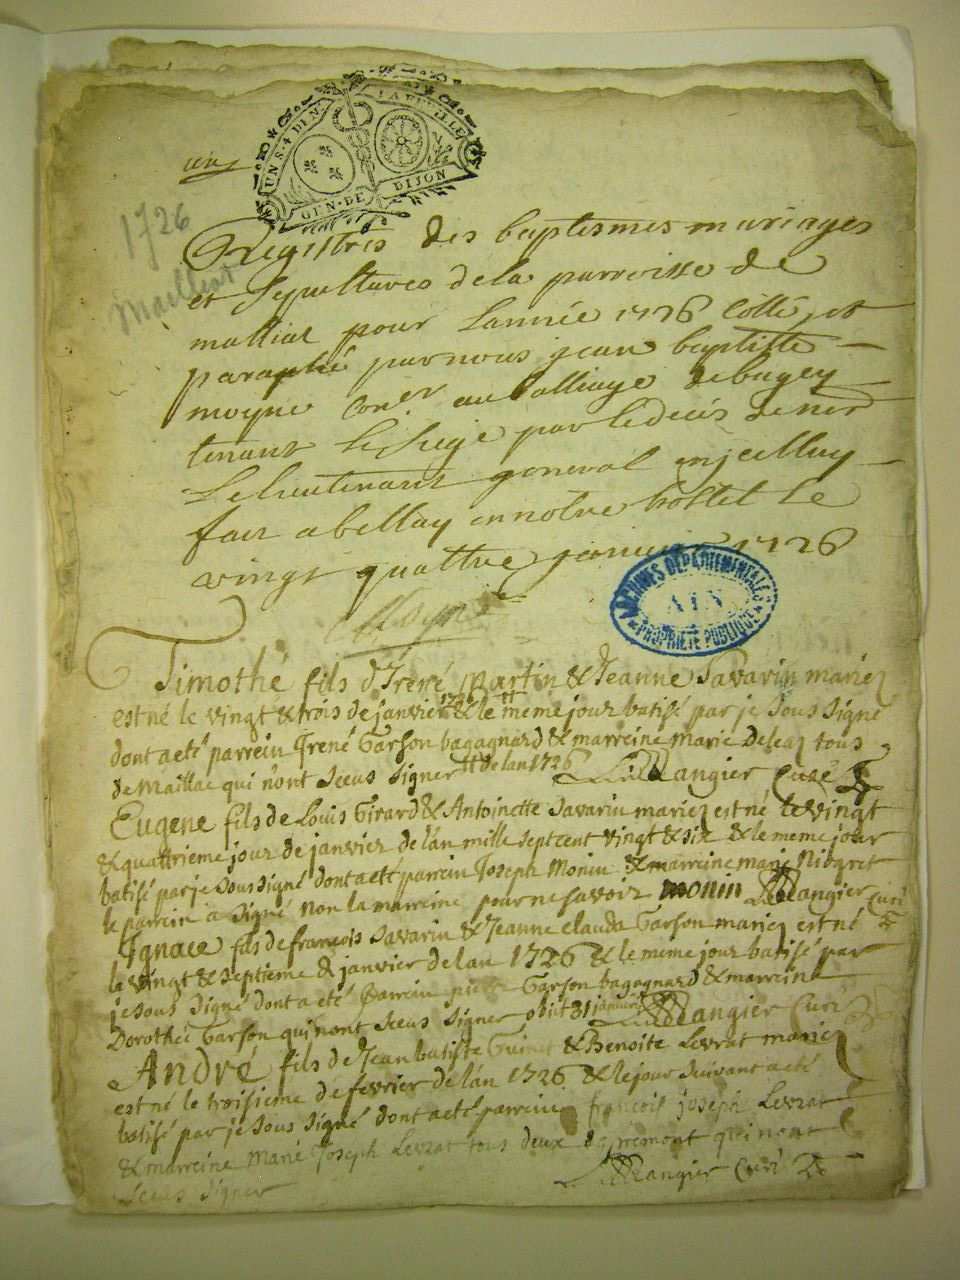 UN S. 4 DEN.
LA FEUILLE
GEN. DE DIJON
un
1726
Mailliat
Registres des baptesmes mariages
et sepultures de la parroisse de
malliat pour Lannée 1726 Cotté et
paraphé par nous jean baptiste
moyne Con.er au balliage de bugey
tenant le siege par le deces de mr
Le lieutenant general en jcelluy
fait a belley en notre hostel le
vingt quattre janvier 1726
Moyne
ARCHIVES DÉPARTEMENTALES
AIN
PROPRIÉTÉ PUBLIQUE
Timothé fils d'Irené Martin & Jeanne Savarin mariez
est né le vingt & trois de janvier 1726 & le meme jour batisé par je sous signé
dont a eté parrein Irené Garson bagagnard & marreine Marie tous
de Maillac qui n'ont sceus signer de lan 1726 Langier Curé
Eugene fils de Louis Girard & Antoinette Savarin mariez est né le vingt
& quattrieme jour de janvier de lán mille sept cent vingt & six & le meme jour
batisé par je sous signé dont a eté parrein Joseph Monin & marreine marie
le parrein a signé non la marreine pour ne savoir monin Langier Curé
Ignace fils de françois Savarin & Jeanne clauda Garson mariez est né
le vingt & septieme de janvier de lan 1726 & le meme jour batisé par
je sous signé dont a eté parrein Garson bagagnard & marreine
Dorothée Garson qui n'ont sceus signer obiit 31 janvier Langier Curé
André fils de Jean batiste Guinet & Benoite Levrat mariez
est né le troisieme de février de lán 1726 & le jour suivant a eté
batisé par je sous signé dont a eté parrein françois joseph Levrat
& marreine Marie Joseph Levrat tous deux qui n'ont
sceus signer Langier Curé